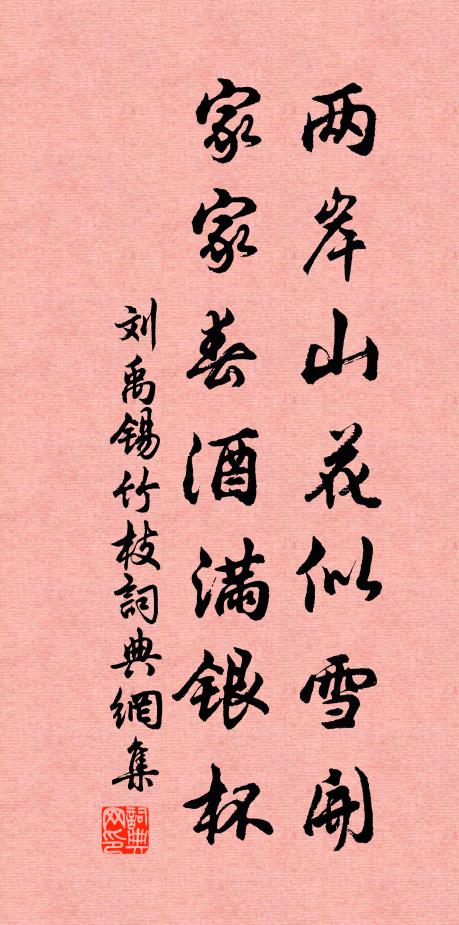 两岸山花似雪开
家家春酒满银杯
刘禹锡竹枝詞典網集
詞典网印